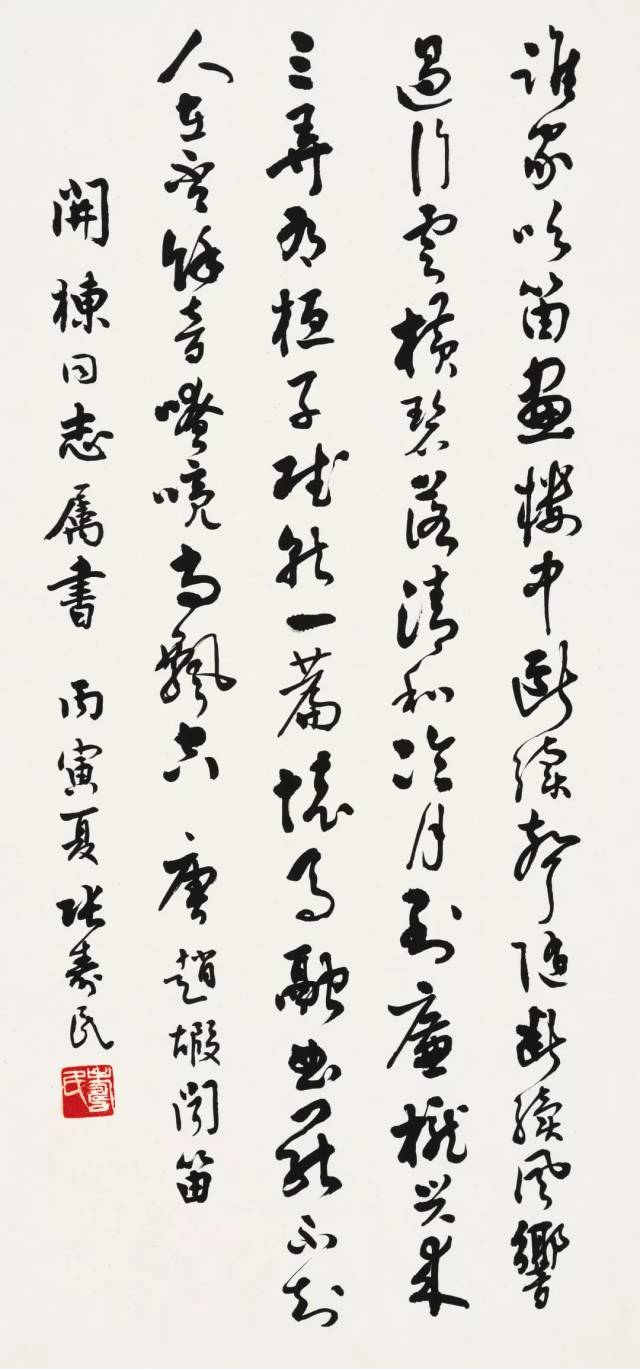 誰家吹笛畫樓中斷續聲隨斷續風響
遏行雲橫碧落清和冷月到廉櫳興来
三弄有桓子賦就一篇懷馬融曲罷不知
人在否餘音嘹喨尚飄空 唐趙嘏聞笛
開棟同志属書 丙寅夏張壽民
壽民